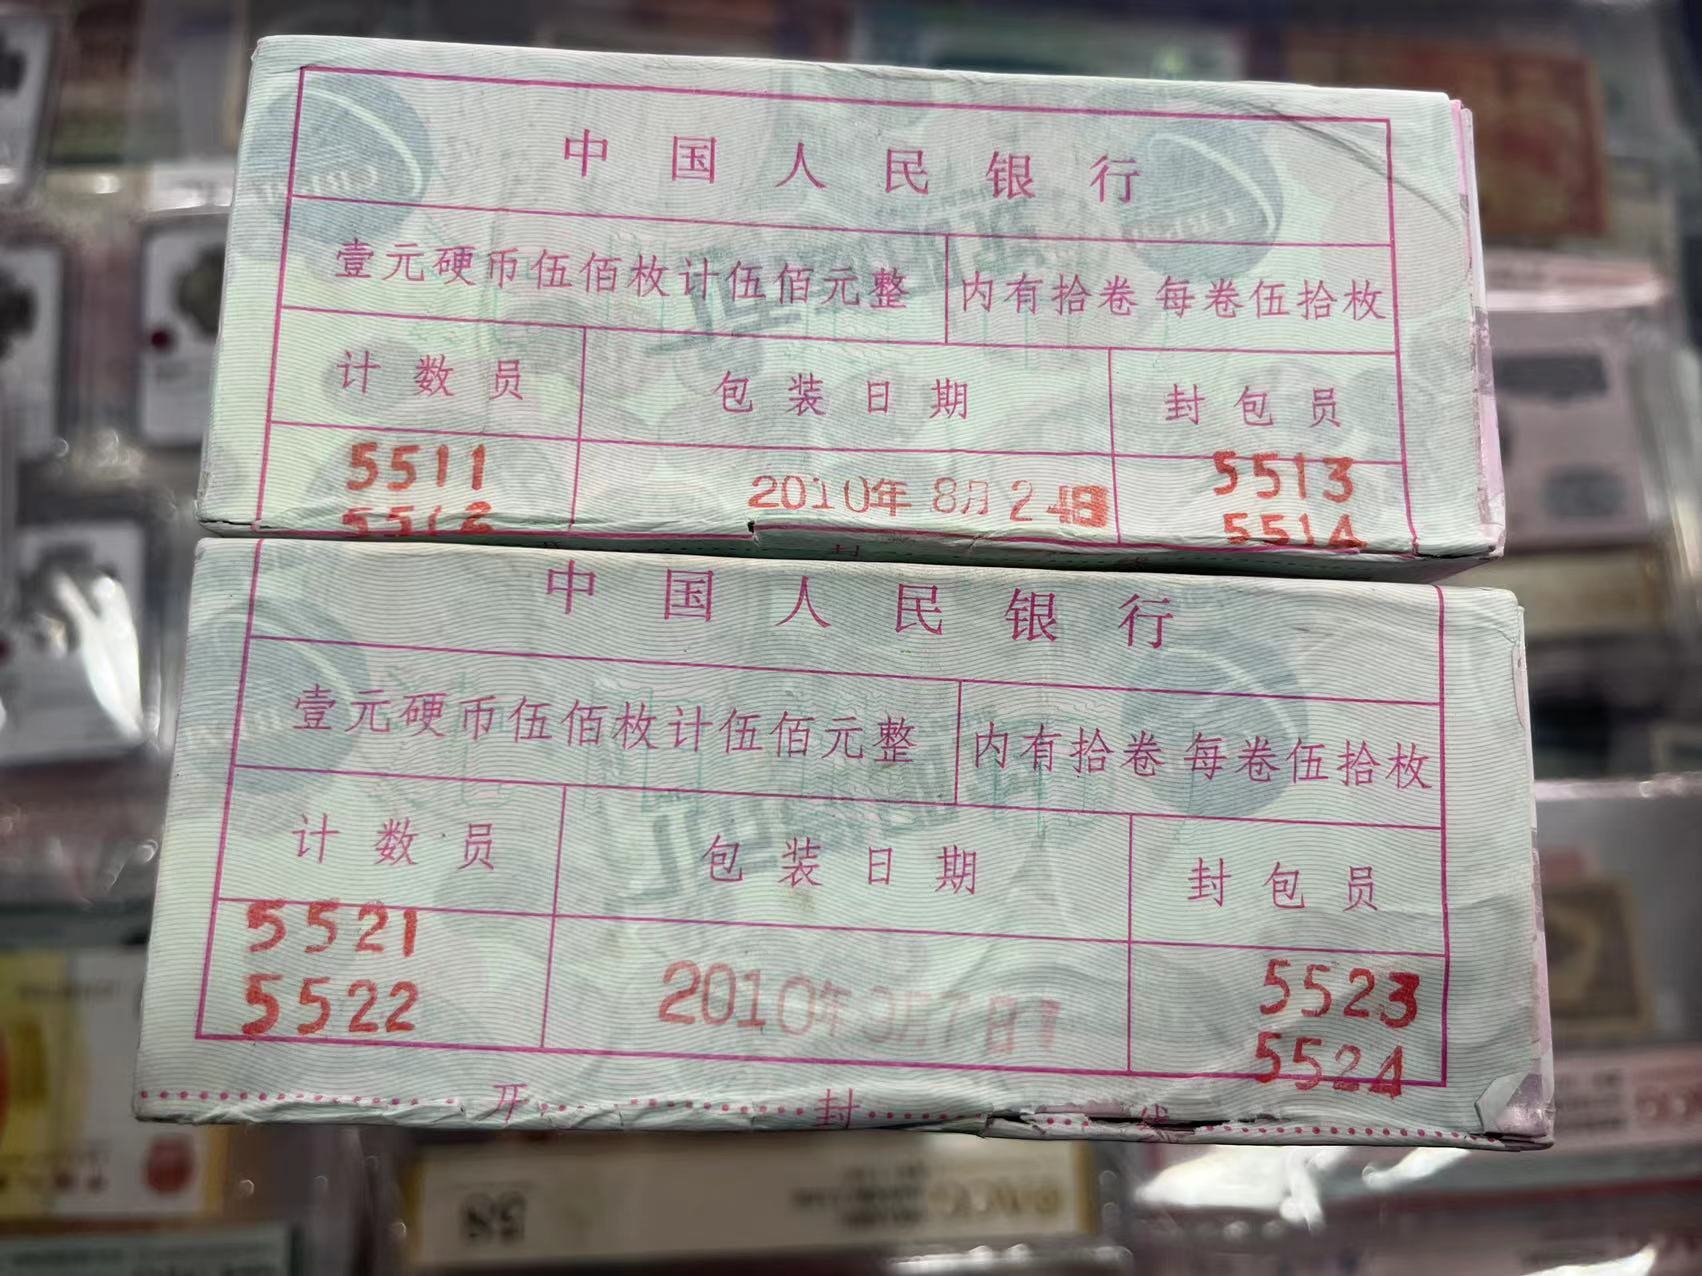 中国人民银行
壹元硬币伍佰枚计伍佰元整 内有拾卷 每卷伍拾枚
计数员 包装日期 封包员
5511 2010年8月24日 5513
5512 5514
中国人民银行
壹元硬币伍佰枚计伍佰元整 内有拾卷 每卷伍拾枚
计数员 包装日期 封包员
5521 5523
5522 2010年 月7日 5524
开 封